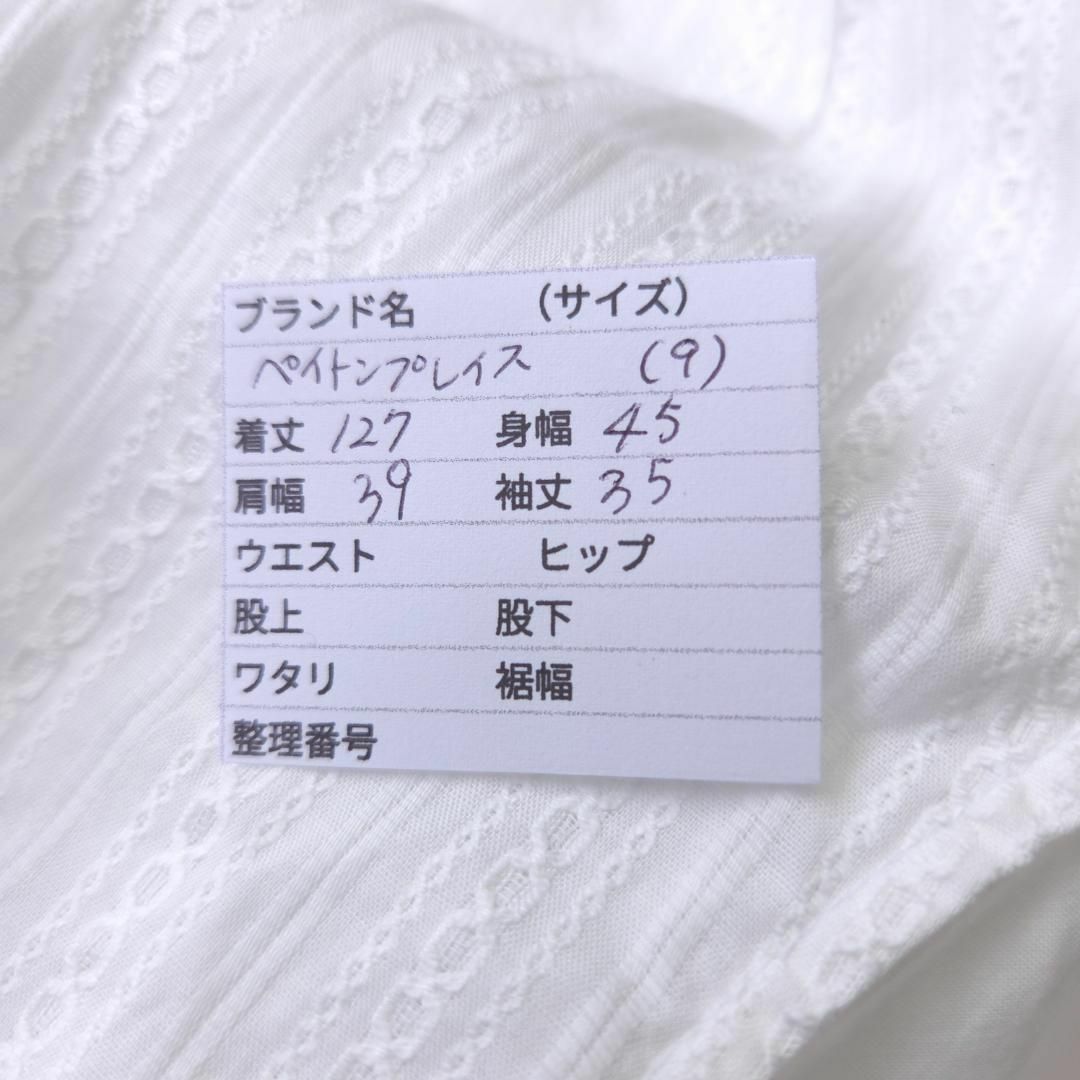 ブランド名 （サイズ）
ペイトンプレイス (9)
着丈 127 身幅 45
肩幅 39 袖丈 35
ウエスト ヒップ
股上 股下
ワタリ 裾幅
整理番号